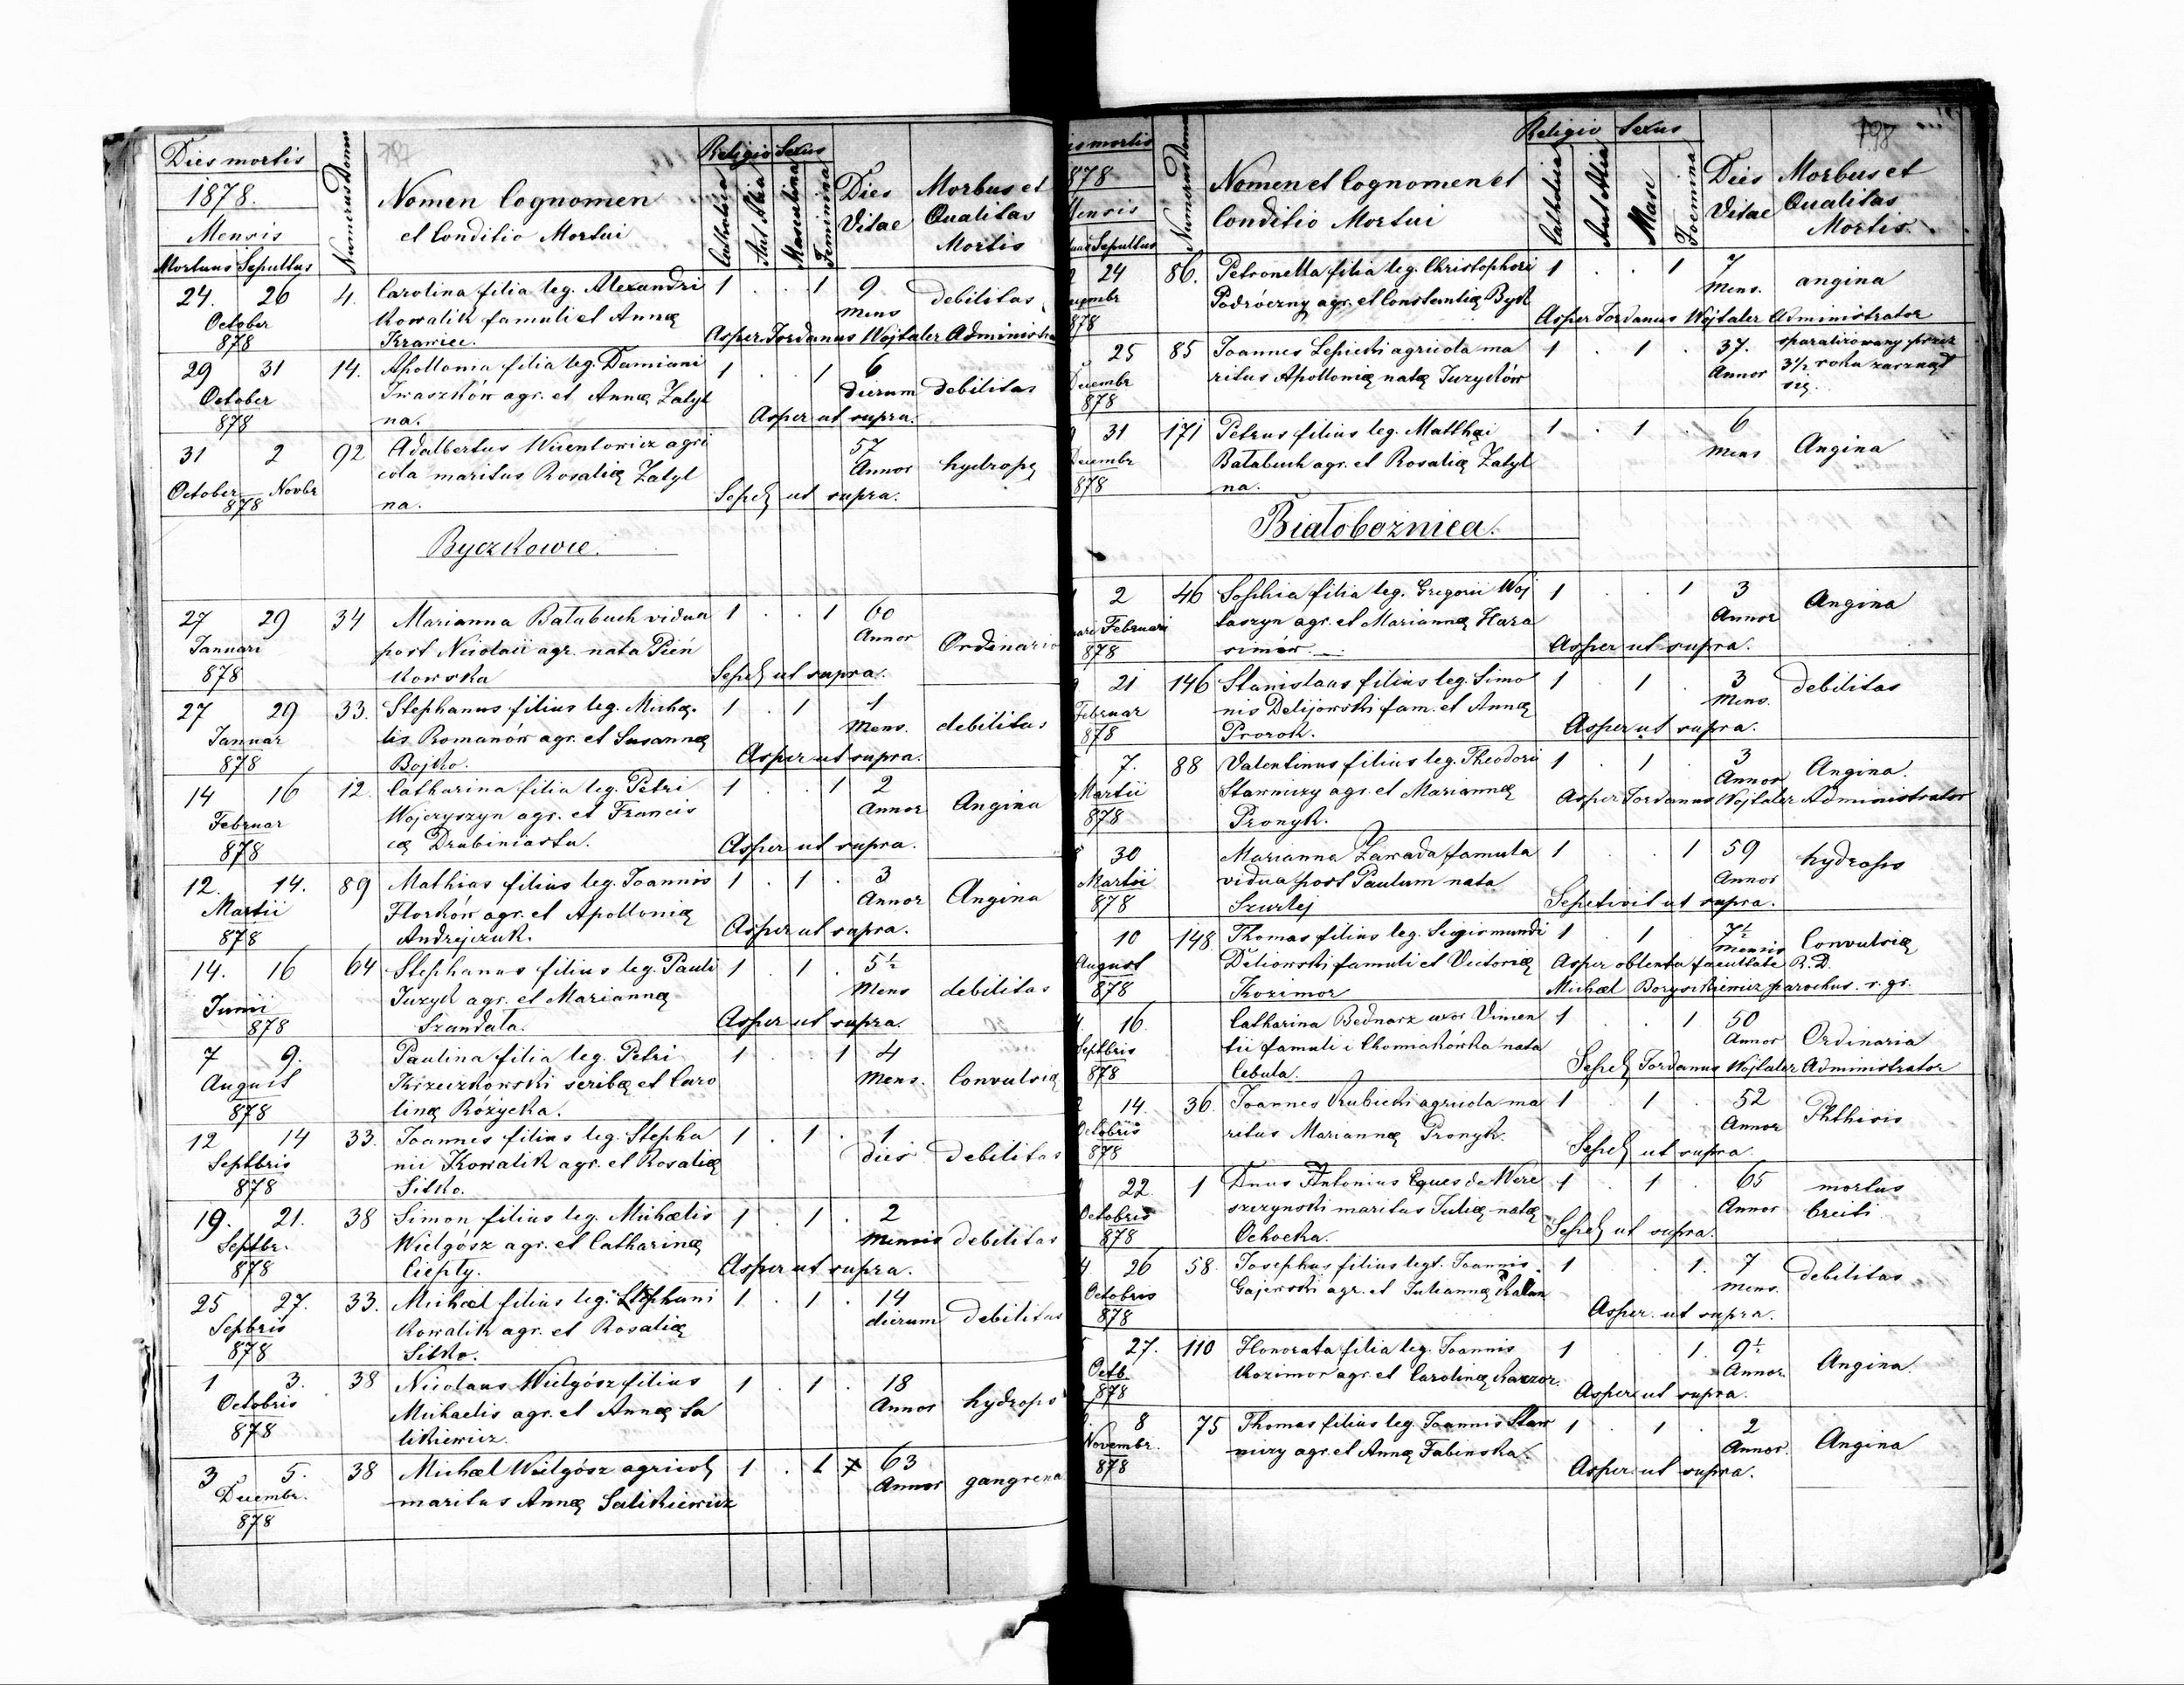 Dies mortis
1878.
Mensis
Mortuus Sepultus
Numerus Domus
797
Nomen Cognomen
et Conditio Mortui
Religio Sexus
Catholica
Aut Alia
Masculina
Feminina
Dies
Vitae
Morbus et
Qualitas
Mortis
24. 26 4. Carolina filia leg. Alexandri 1 . . 1 9 debilitas
October Kowalik famuli et Annæ Mens
878 Krawiec. Asper Jordanus Wojtaler Administra
29 31 14. Apollonia filia leg. Damiani 1 . . 1 6
October Iwaszków agr. et Annæ Zatyl dierum debilitas
878 na. Asper ut supra.
31 2 92 Adalbertus Wientowicz agri 57
October Novbr cola maritus Rosaliæ Zatyl Annor hydrope
878 na. Sepel ut supra.
Byczkowce.
27 29 34 Marianna Bałabuch vidua 1 . . 1 60
Januari post Nicolaii agr. nata Pień Annor Ordinario
878 kowska Sepel ut supra.
27 29 33. Stephanus filius leg. Michæ 1 . 1 1
Januar lis Romanów agr. et Susannæ Mens. debilitas
878 Bojko. Asper ut supra.
14 16 12. Catharina filia leg. Petri 1 . . 1 2
Februar Wojczyszyn agr. et Francis Annor Angina
878 cæ Drabiniasta. Asper ut supra.
12. 14. 89 Mathias filius leg. Joannis 1 . 1 . 3
Martii Florków agr. et Apolloniæ Annor Angina
878 Andrejczuk. Asper ut supra.
14. 16 64 Stephanus filius leg. Pauli 1 . 1 . 5½
Junii Juzyk agr. et Mariannæ Mens debilitas
878 Szandała. Asper ut supra.
7 9. Paulina filia leg. Petri 1 . . 1 4
August Krzeczkowski scribæ et Caro Mens. Convulsiæ
878 linæ Różycka.
12 14 33. Joannes filius leg. Stepha 1 . 1 . 1
Septbris nii Kowalik agr. et Rosaliæ dies debilitas
878 Sitko.
19. 21. 38 Simon filius leg. Michælis 1 . 1 . 2
Septbr. Wielgósz agr. et Catharinæ Mensis debilitas
878 Ciepły. Asper ut supra.
25 27. 33. Michæl filius leg. Stephani 1 . 1 . 14
Sepbris Kowalik agr. et Rosaliæ dierum debilitas
878 Sitko.
1 3. 38 Nicolaus Wielgósz filius 1 . 1 . 18
Octobris Michaelis agr. et Annæ Sa Annor hydrops
878 likiewicz.
3 5. 38 Michæl Wielgósz agricol 1 . 1 63
Decembr. maritus Annæ Salikiewicz Annor gangrena
878
is mortis
878
Mensis
Sepultus
Numerus Domus
Nomen et Cognomen et
Conditio Mortui
Religio Sexus
Catholica
Aut Alia
Mascu
Foemina
Dies
Vitae
798
Morbus et
Qualitas
Mortis.
24 86. Petronella filia leg. Christophori 1 . . 1 7 angina
embr Podróczny agr. et Constantiæ Byst Mens.
878 Asper Jordanus Wojtaler Administrator
25 85 Joannes Lepicki agricola ma 1 . 1 . 37. sparaliżowany przez
Decembr ritus Apolloniæ natæ Juzyków Annor 3½ roku zarznął
878 się
31 171 Petrus filius leg. Matthæi 1 . 1 . 6
Decembr Bałabuch agr. et Rosaliæ Zatyl Mens Angina
878 na.
Białobożnica.
2 46 Sophia filia leg. Gregorii Woj 1 . . 1 3
ari Februari taszyn agr. et Mariannæ Hara Annor Angina
878 simów. Asper ut supra.
21 146 Stanislaus filius leg. Simo 1 . 1 . 3 debilitas
Februar nis Delijowski fam. et Annæ Mens.
878 Prorok. Asper ut supra.
7. 88 Valentinus filius leg. Theodori 1 . 1 . 3 Angina.
Martii Starniczy agr. et Mariannæ Annor
878 Pronyk. Asper Jordanus Wojtaler Administrator
30 Marianna Zawada famula 1 . . 1 59 hydrops
Martii vidua post Paulum nata Annor
878 Szurlej Sepelivit ut supra.
10 148. Thomas filius leg. Sigismundi 1 . 1 . 7½ Convulsiæ
August Deliowski famuli et Victoriæ Mensis
878 Kozimor Asper obtenta facultate R. D.
Michæl Borysikiewicz parochus. r. gr.
16. Catharina Bednarz uxor Vincen 1 . . 1 50
Septbris tii famuli i Chomiakówka nata Annor Ordinaria
878 Cebula. Sepel Jordanus Wojtaler Administrator
14. 36. Joannes Kubicki agricola ma 1 . 1 . 52
Octobris ritus Mariannæ Pronyk. Annor Phthisis
878 Sepel ut supra.
22. 1 Dnus Antonius Eques de Were 1 . 1 . 65 mortus
Octobris szczynski maritus Juliæ natæ Annor breiti.
878 Ochocka. Sepel ut supra.
26 58. Josephus filius legt. Joannis 1 . . 1. 7 debilitas
Octobris Gajewski agr. et Juliannæ Kalan Mens.
878 Asper ut supra.
27. 110 Honorata filia leg. Joannis 1 . . 1. 9½
Octb. Kozimor agr. et Carolinæ Kaczor. Annor Angina.
878 Asper ut supra.
8 75 Thomas filius leg. Joannis Staw 1 . 1 . 2
Novembr. niczy agr. et Annæ Fabinska. Annor. Angina
878 Asper ut supra.